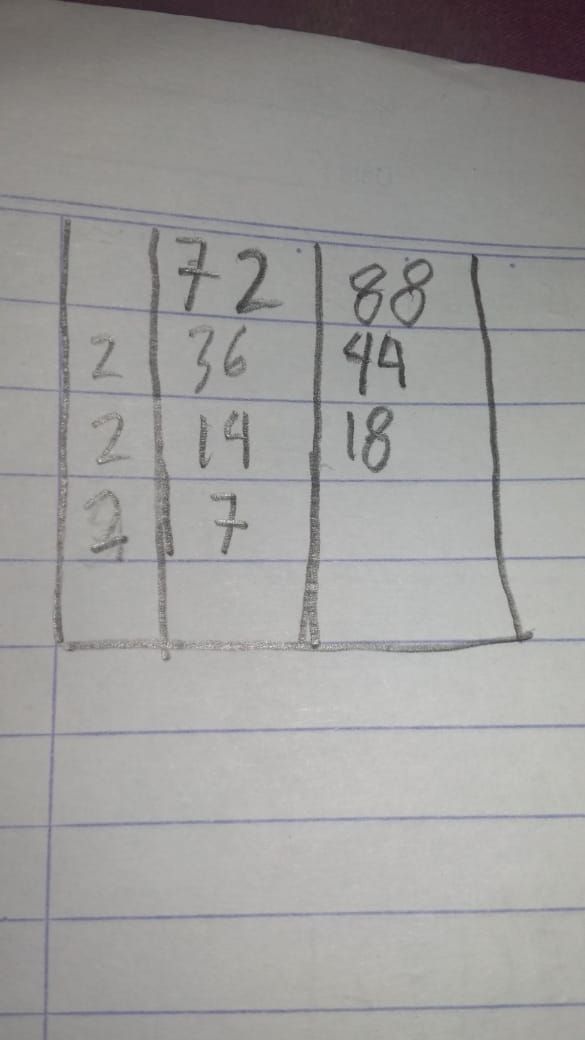 72 88
2 36 44
2 14 18
2 7